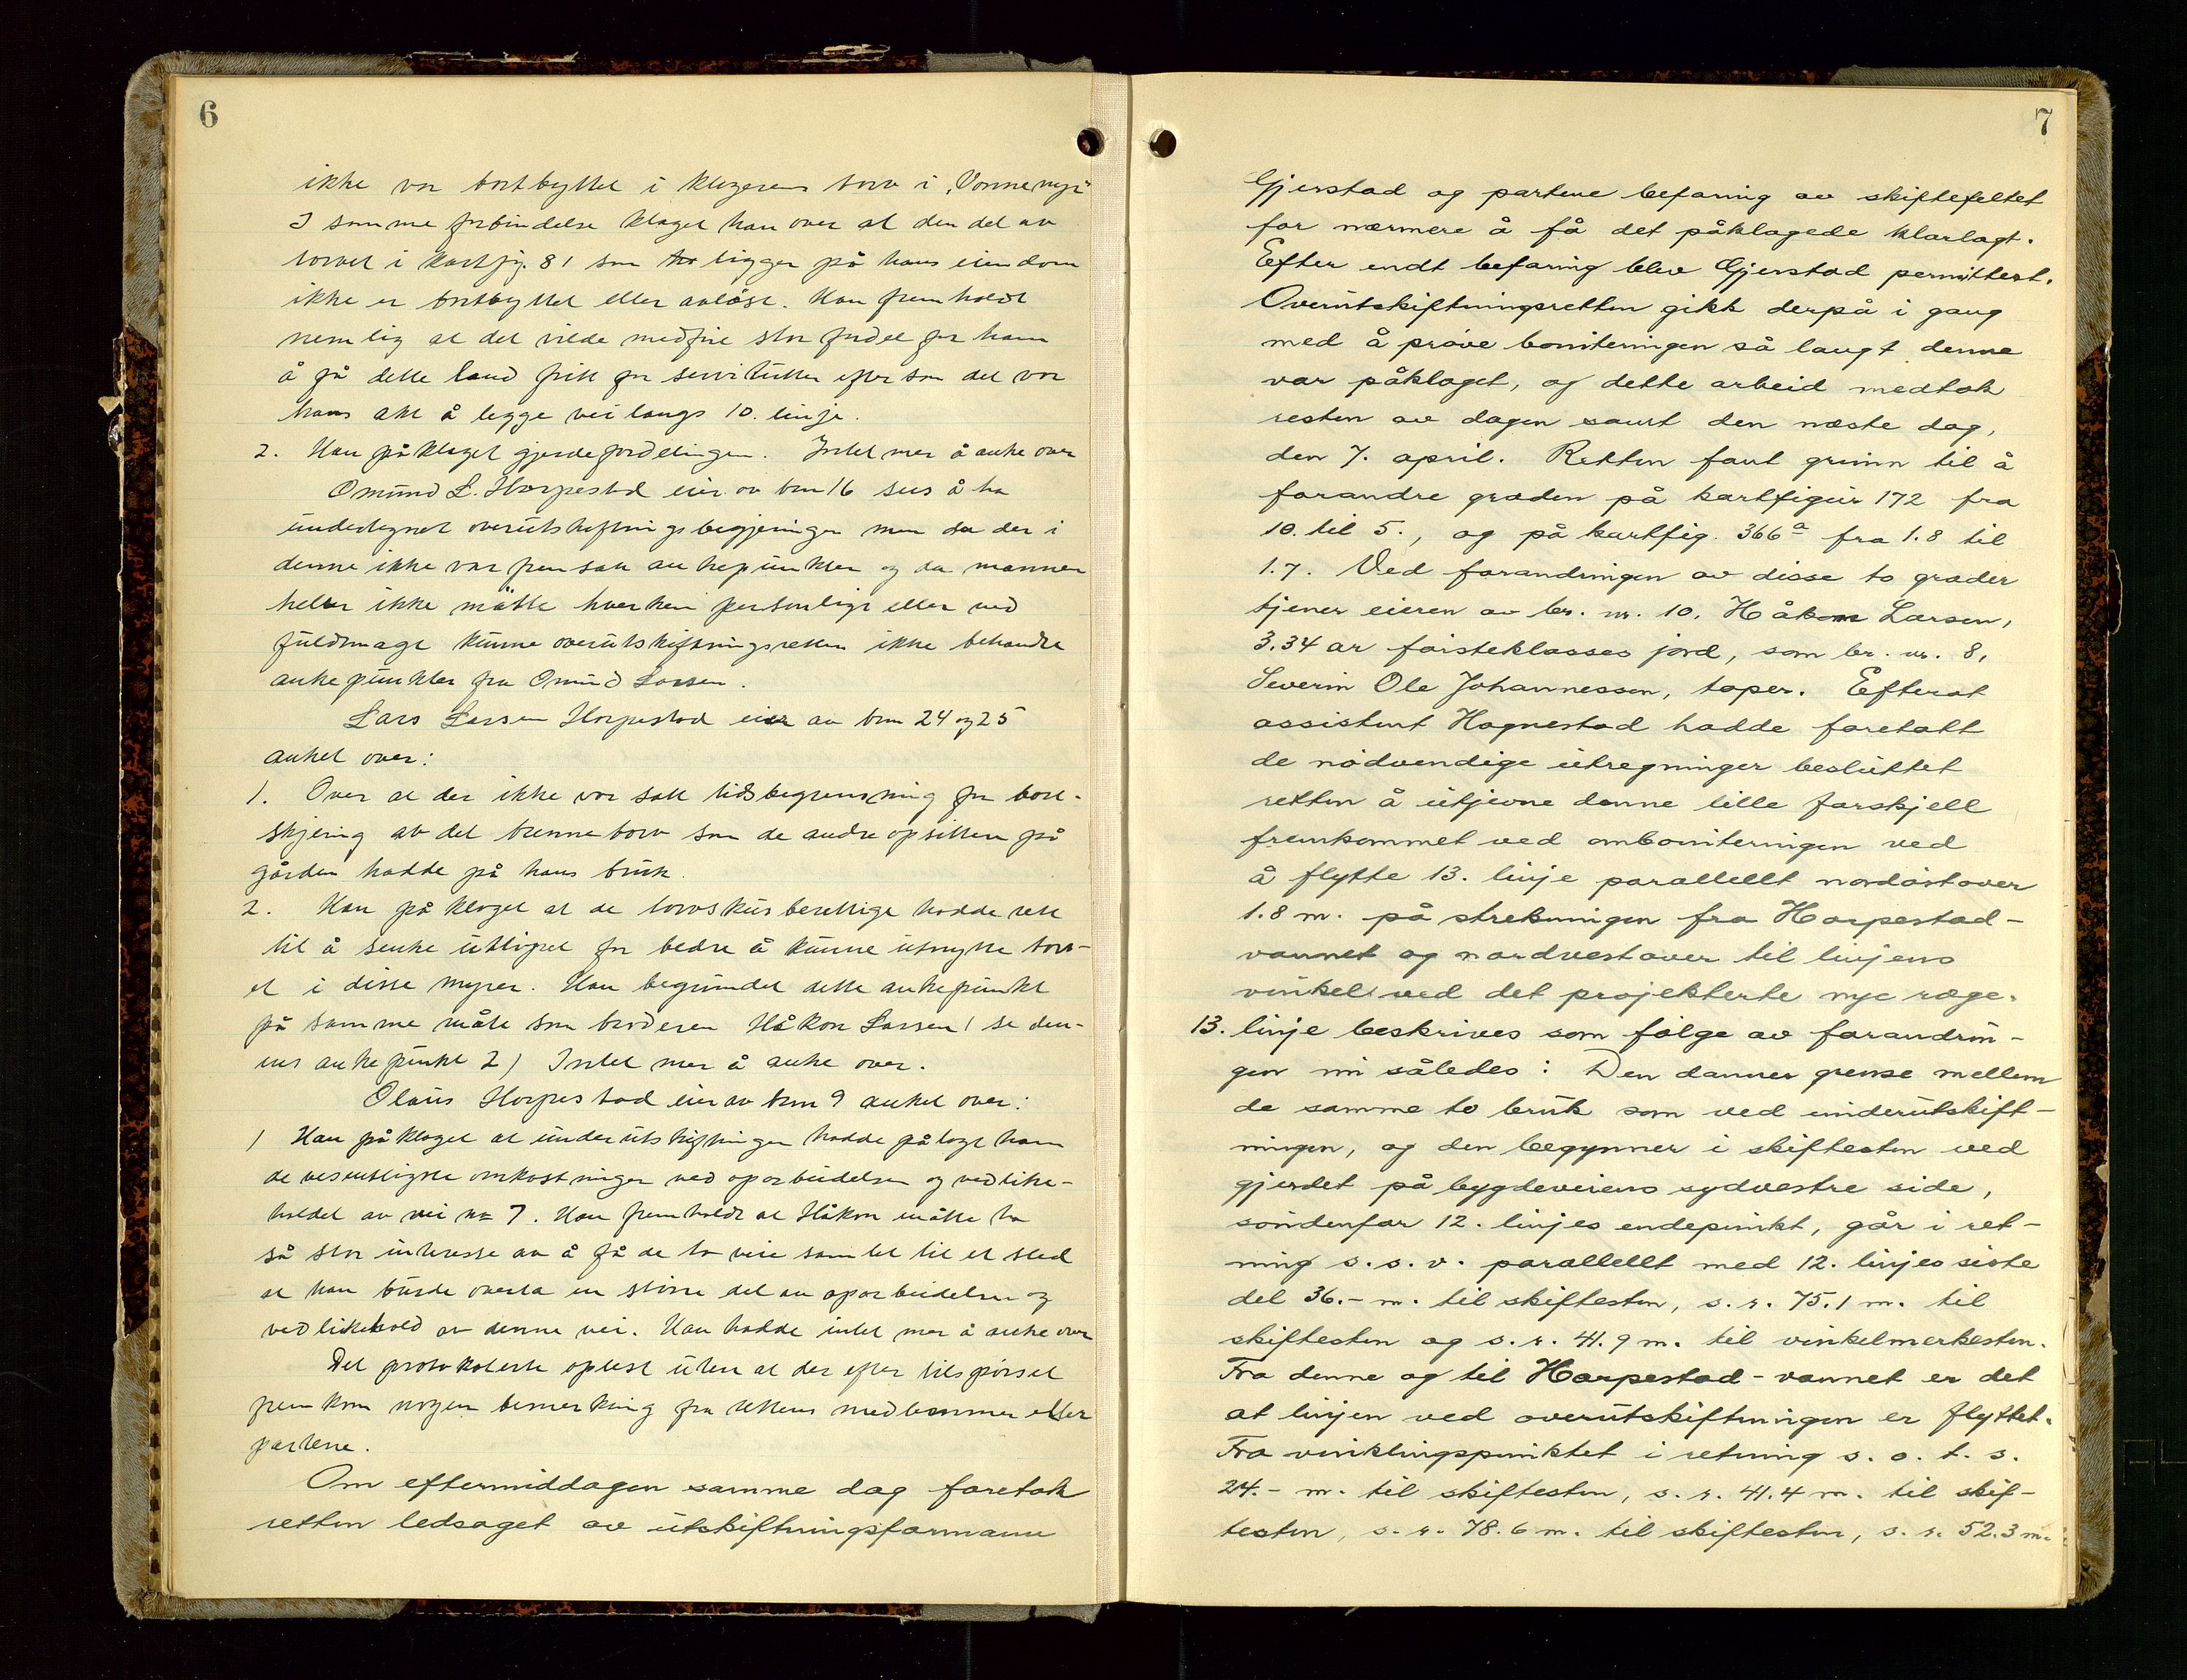 6
ikke var bortbyttet i klagerens torv i "Vonnemyr"
I samme forbindelse klaget han over at den del av
torvet i kartfig. 81 som ligger på hans eiendom
ikke er bortbyttet eller avløst. Han fremholdt
nemlig at det vilde medføre stor fordel for ham
å få dette land fritt for servitutter eftersom det var
hans akt å legge vei langs 10. linje.
2. Han påklaget gjerdefordelingen. Intet mer å anke over
Omund L. Horpestad eier av brn 16 sees å ha
undertegnet overutskiftningsbegjeringen men da der i
denne ikke var fremsatt ankepunkter og da mannen
heller ikke møtte hverken personlige eller ved
fuldmagt kunne overutskiftningsretten ikke behandle
ankepunkter fra Omund Larsen.
Lars Larsen Horpestad eier av brn 24 og 25
anket over:
1. Over at der ikke var satt tidsbegrensning for bort-
skjering av det brennetorv som de andre opsittere på
gården hadde på hans bruk.
2. Han påklaget at de torvskursberettige hadde rett
til å senke utløpet for bedre å kunne utnytte torv-
et i disse myrer. Han begrundet dette ankepunkt
på samme måte som broderen Håkon Larsen (se den-
nes ankepunkt 2) Intet mer å anke over.
Olaus Horpestad eier av brn 9 anket over:
1 Han påklaget at underutskiftningen hadde pålagt ham
de vesentligste omkostninger ved oparbeidelsen og vedlike-
holdet av vei no 7. Han fremholdt at Håkon måtte ha
så stor interesse av å få de to veie samlet til et sted
at han burde overta en større del av oparbeidelsen og
vedlikehold av denne vei. Han hadde intet mer å anke over
Det protokolerte oplest uten at der efter tilspørsel
fremkom nogen bemerkning fra rettens medlemmer eller
partene.
Om eftermiddagen samme dag foretok
retten ledsaget av utskiftningsformann
7
Gjerstad og partene befaring av skiftefeltet
for nærmere å få det påklagede klarlagt.
Efter endt befaring blev Gjerstad permittert.
Overutskiftningsretten gikk derpå i gang
med å prøve boniteringen så langt denne
var påklaget, og dette arbeid medtok
resten av dagen samt den næste dag,
den 7. april. Retten fant grunn til å
forandre graden på kartfigur 172 fra
10. til 5., og på kartfig. 366a fra 1.8 til
1.7. Ved forandringen av disse to grader
tjener eieren av br. nr. 10, Håkon Larsen,
3.34 ar førsteklasses jord, som br. nr. 8,
Severin Ole Johannessen, taper. Efterat
assistent Hognestad hadde foretatt
de nødvendige utregninger besluttet
retten å utjevne denne lille forskjell
fremkommet ved omboniteringen ved
å flytte 13. linje parallellt nordøstover
1.8 m. på strekningen fra Horpestad-
vannet og nordvestover til linjens
vinkel ved det projekterte nye ræge.
13. linje beskrives som følge av forandrin-
gen nu således: Den danner grense mellem
de samme to bruk som ved underutskift-
ningen, og den begynner i skiftesten ved
gjerdet på bygdeveiens sydvestre side,
sondenfor 12. linjes endepunkt, går i ret-
ning s. s. v. parallellt med 12. linjes siste
del 36.- m. til skiftesten, s. r. 75.1 m. til
skiftesten og s. r. 41.9 m. til vinkelmerkesten.
Fra denne og til Horpestad-vannet er det
at linjen ved overutskiftningen er flyttet.
Fra vinklingspunktet i retning s. o. t. s.
24.- m. til skiftesten, s. r. 41.4 m. til skif-
testen, s. r. 78.6 m. til skiftesten, s. r. 52.3 m.